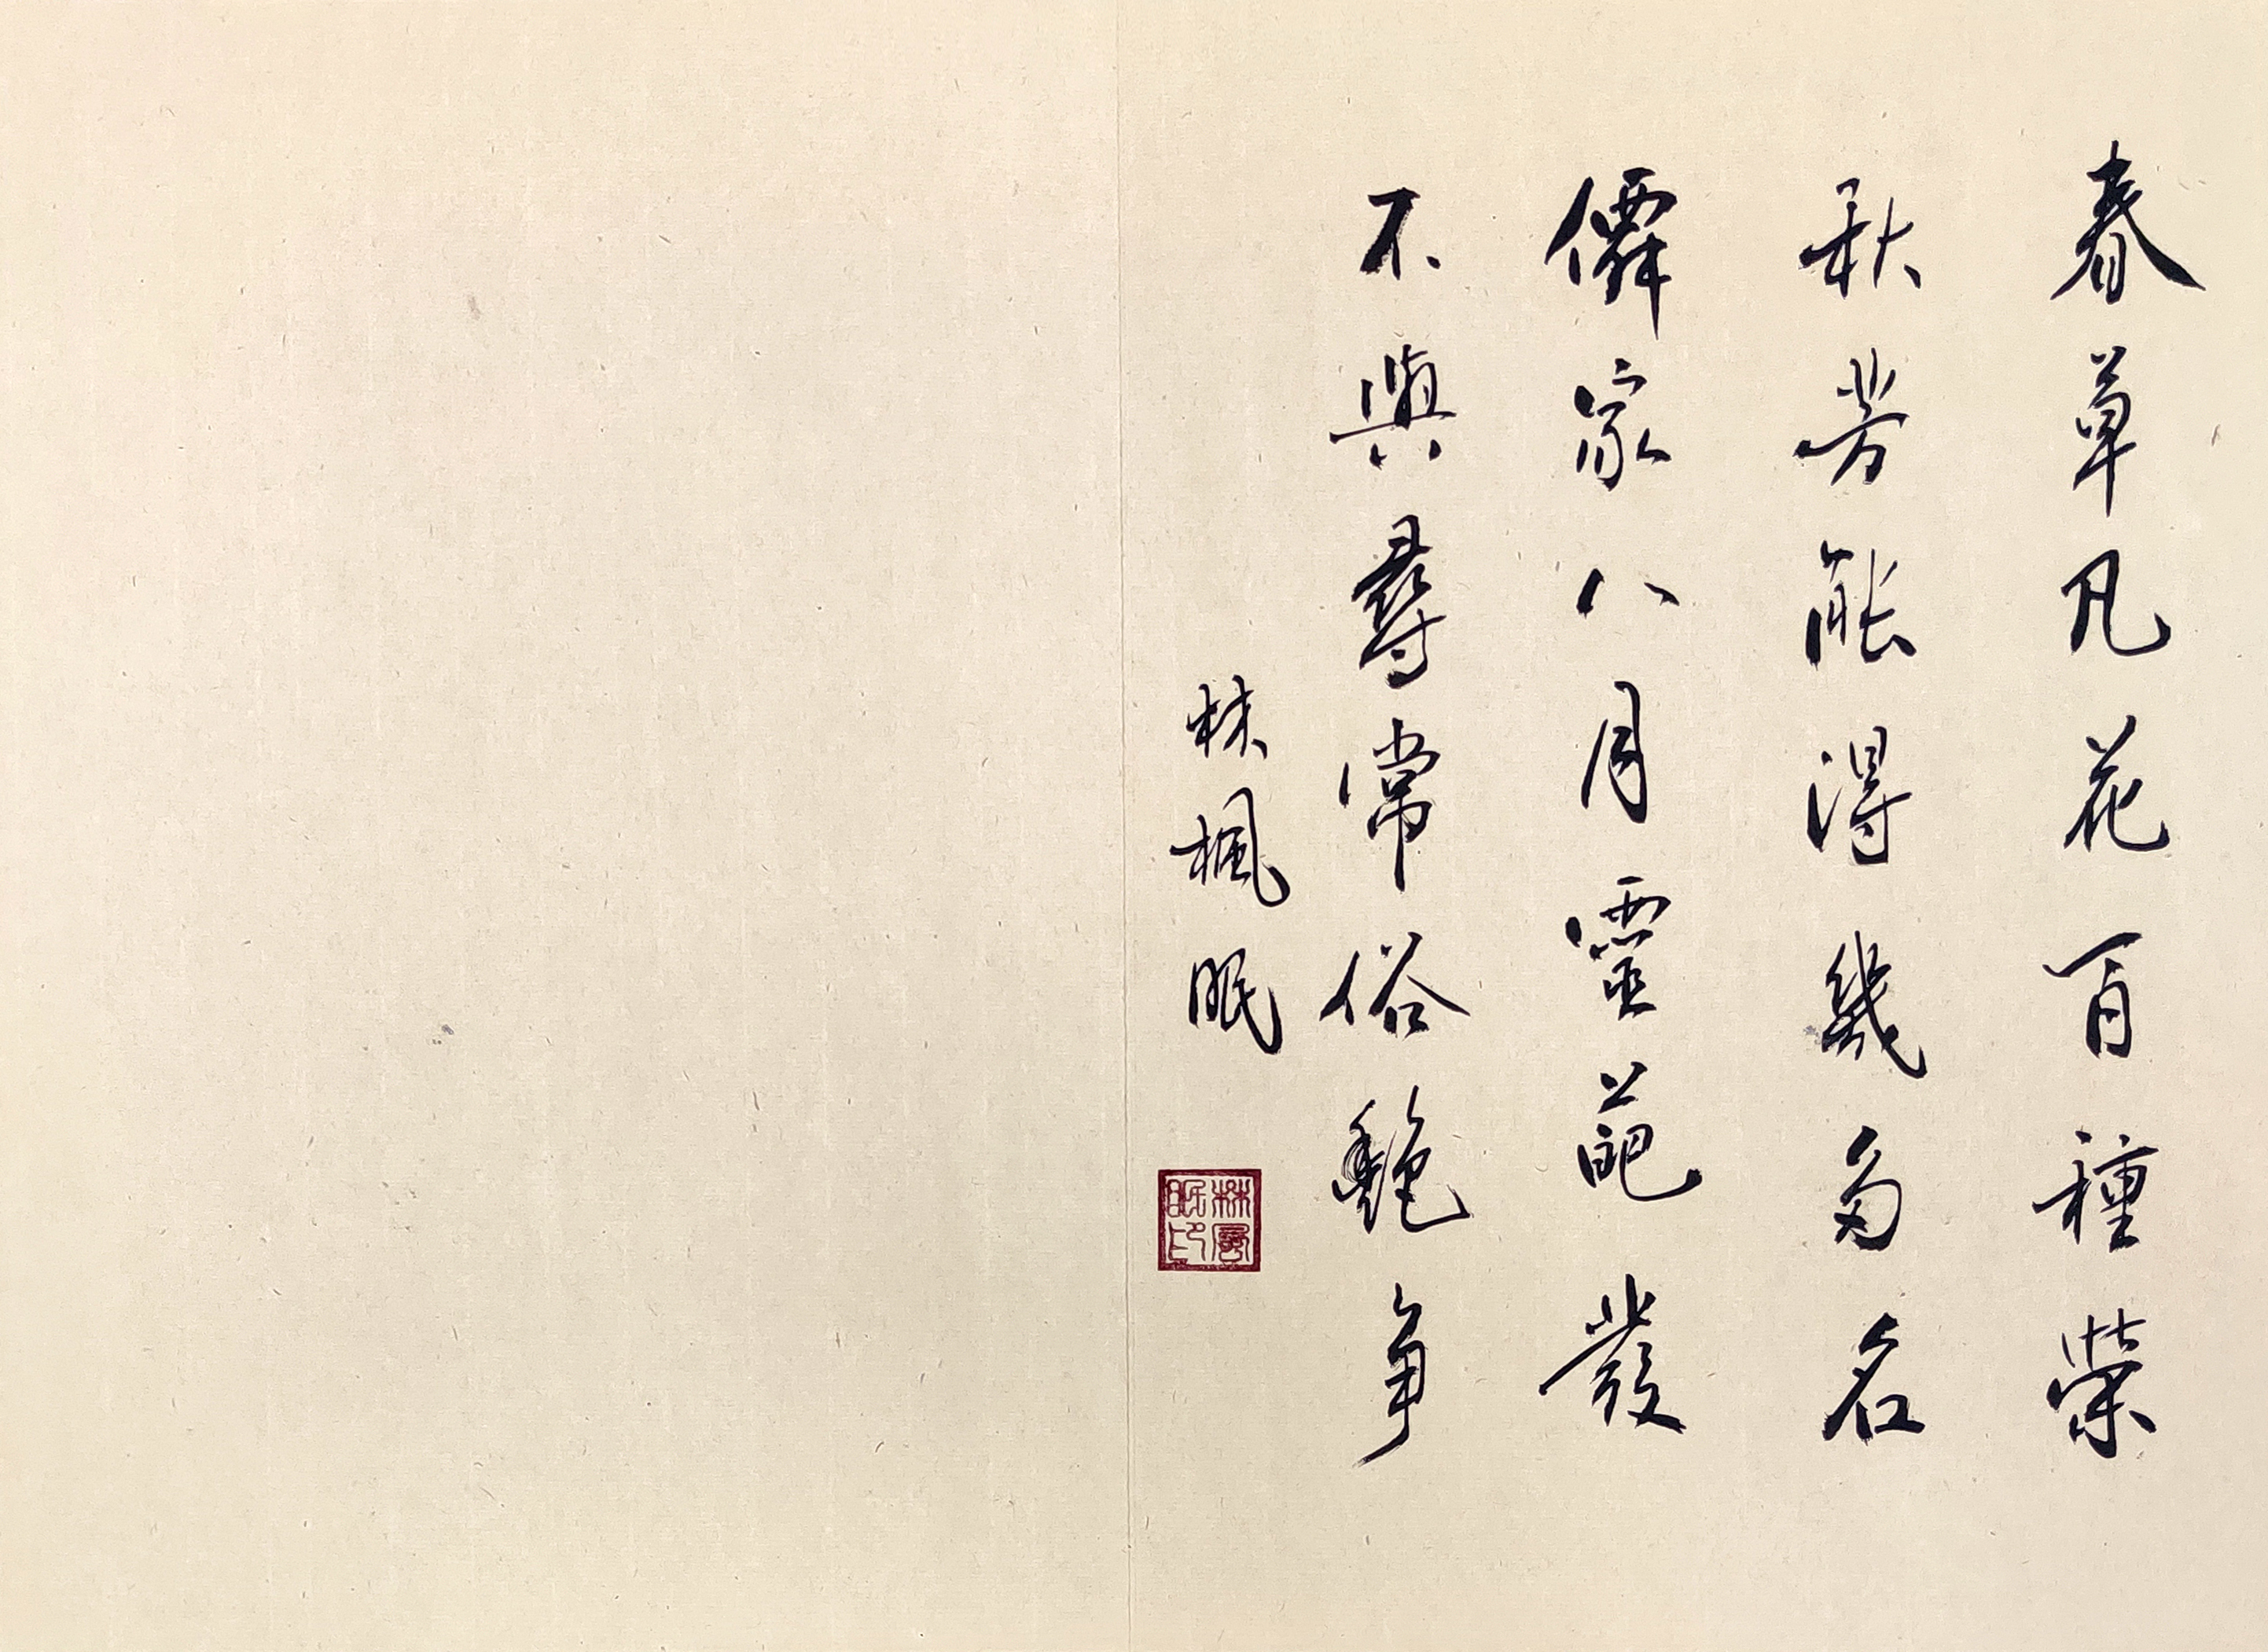 春草凡花百種榮
秋芳能得幾多名
僊家八月靈葩發
不與尋常俗艷爭
林楓眠
林風眠印